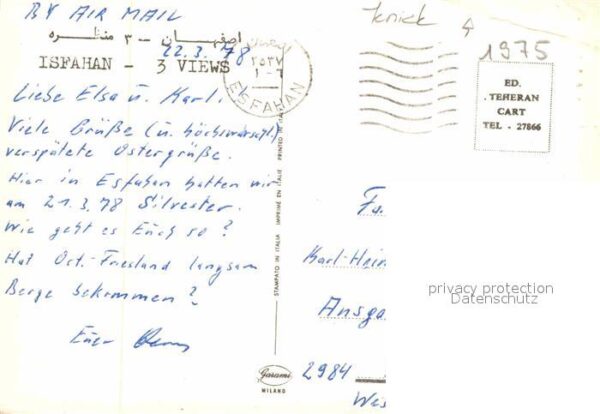 BY AIR MAIL
knick
1975
اصفهان — ۳ منظره
22.3.78
ISFAHAN - 3 VIEWS
۲۵۳۷
ESFAHAN
ED.
TEHERAN
CART
TEL. 27866
Liebe Elsa u. Karl!
Viele Grüße (u. höchstwarschl.)
verspätete Ostergrüße.
Hier in Esfahan hatten wir
am 21.3.78 Silvester.
Wie geht es Euch so?
Hat Ost-Friesland langsam
Berge bekommen?
Euer
STAMPATO IN ITALIA IMPRIMÉ EN ITALIE PRINTED IN ITALY
Garami
MILANO
Fa
Karl-Hein
Ansga
2984
Wes
privacy protection
Datenschutz